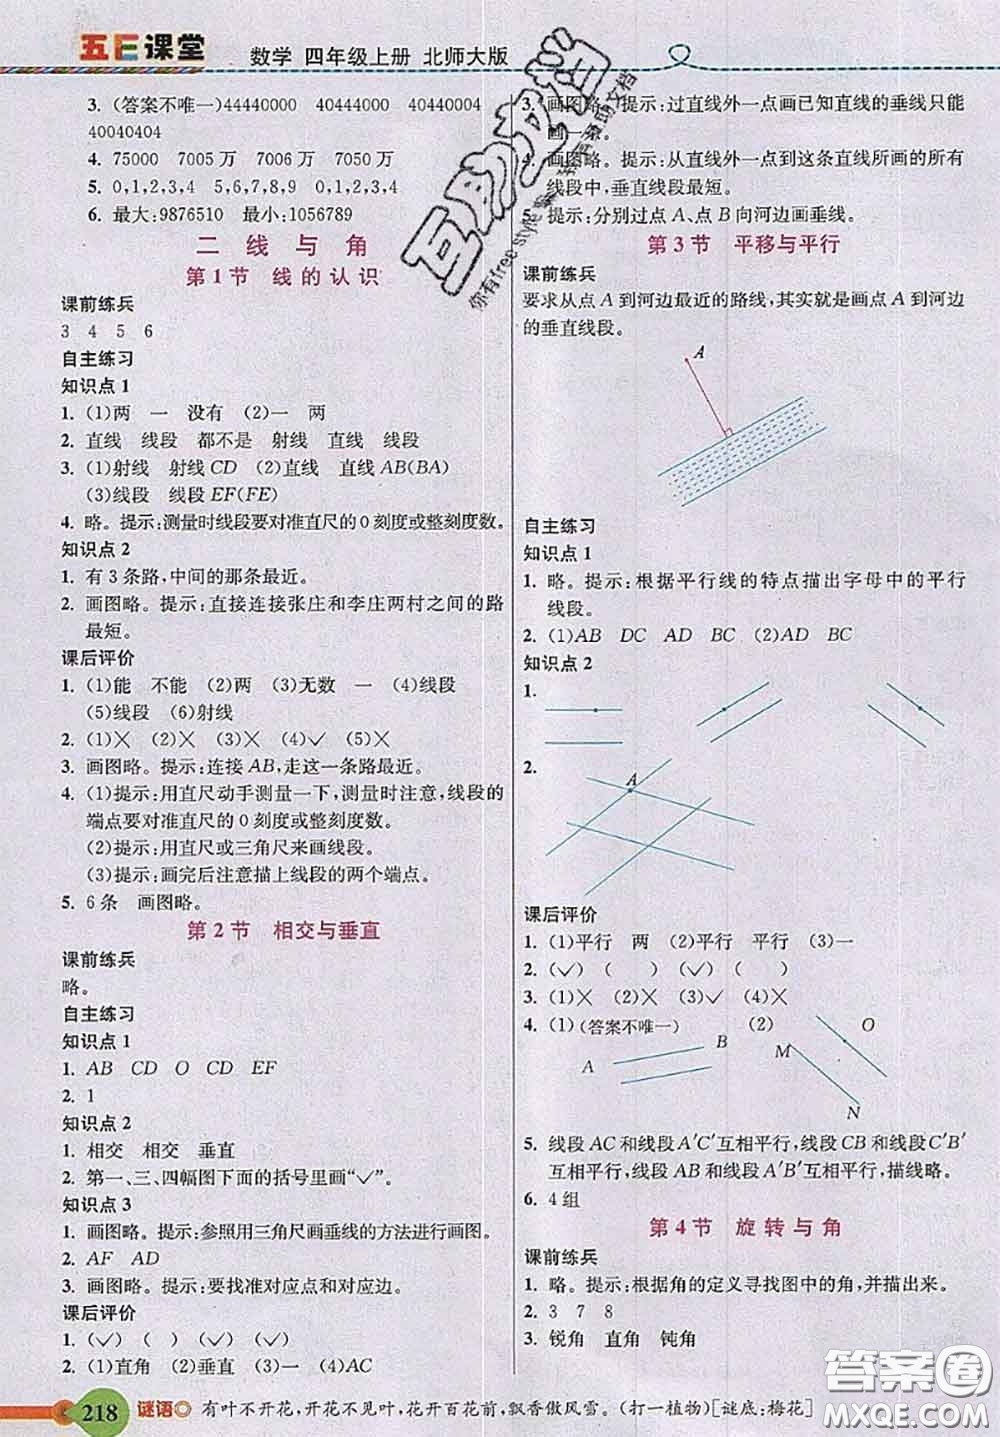 五E课堂 数学 四年级上册 北师大版
3. (答案不唯一)44440000 40444000 40440400
40040404
4. 75000 7005万 7006万 7050万
5. 0,1,2,3,4 5,6,7,8,9 0,1,2,3,4
6. 最大:9876510 最小:1056789
二 线 与 角
第1节 线的认识
课前练兵
3 4 5 6
自主练习
知识点1
1. (1)两 一 没有 (2)一 两
2. 直线 线段 都不是 射线 直线 线段
3. (1)射线 射线CD (2)直线 直线AB(BA)
(3)线段 线段EF(FE)
4. 略。提示:测量时线段要对准直尺的0刻度或整刻度数。
知识点2
1. 有3条路,中间的那条最近。
2. 画图略。提示:直接连接张庄和李庄两村之间的路
最短。
课后评价
1. (1)能 不能 (2)两 (3)无数 一 (4)线段
(5)线段 (6)射线
2. (1)✕ (2)✕ (3)✕ (4)✓ (5)✕
3. 画图略。提示:连接AB,走这一条路最近。
4. (1)提示:用直尺动手测量一下,测量时注意,线段的
端点要对准直尺的0刻度或整刻度数。
(2)提示:用直尺或三角尺来画线段。
(3)提示:画完后注意描上线段的两个端点。
5. 6条 画图略。
第2节 相交与垂直
课前练兵
略。
自主练习
知识点1
1. AB CD O CD EF
2. 1
知识点2
1. 相交 相交 垂直
2. 第一、三、四幅图下面的括号里画“✓”。
知识点3
1. 画图略。提示:参照用三角尺画垂线的方法进行画图。
2. AF AD
3. 画图略。提示:要找准对应点和对应边。
课后评价
1. (✓) ( ) (✓) (✓)
2. (1)直角 (2)垂直 (3)一 (4)AC
3. 画图略。提示:过直线外一点画已知直线的垂线只能
画一条。
4. 画图略。提示:从直线外一点到这条直线所画的所有
线段中,垂直线段最短。
5. 提示:分别过点A、点B向河边画垂线。
第3节 平移与平行
课前练兵
要求从点A到河边最近的路线,其实就是画点A到河边
的垂直线段。
A
自主练习
知识点1
1. 略。提示:根据平行线的特点描出字母中的平行
线段。
2. (1)AB DC AD BC (2)AD BC
知识点2
1.
2.
A
课后评价
1. (1)平行 两 (2)平行 平行 (3)一
2. (✓) ( ) (✓) ( )
3. (1)✕ (2)✕ (3)✓ (4)✕
4. (1)(答案不唯一) (2)
A B M O N
5. 线段AC和线段A′C′互相平行,线段CB和线段C′B′
互相平行,线段AB和线段A′B′互相平行,描线略。
6. 4组
第4节 旋转与角
课前练兵
1. 略。提示:根据角的定义寻找图中的角,并描出来。
2. 3 7 8
3. 锐角 直角 钝角
218 谜语 有叶不开花,开花不见叶,花开百花前,飘香傲风雪。(打一植物)[谜底:梅花]
答案圈
MXQE.COM